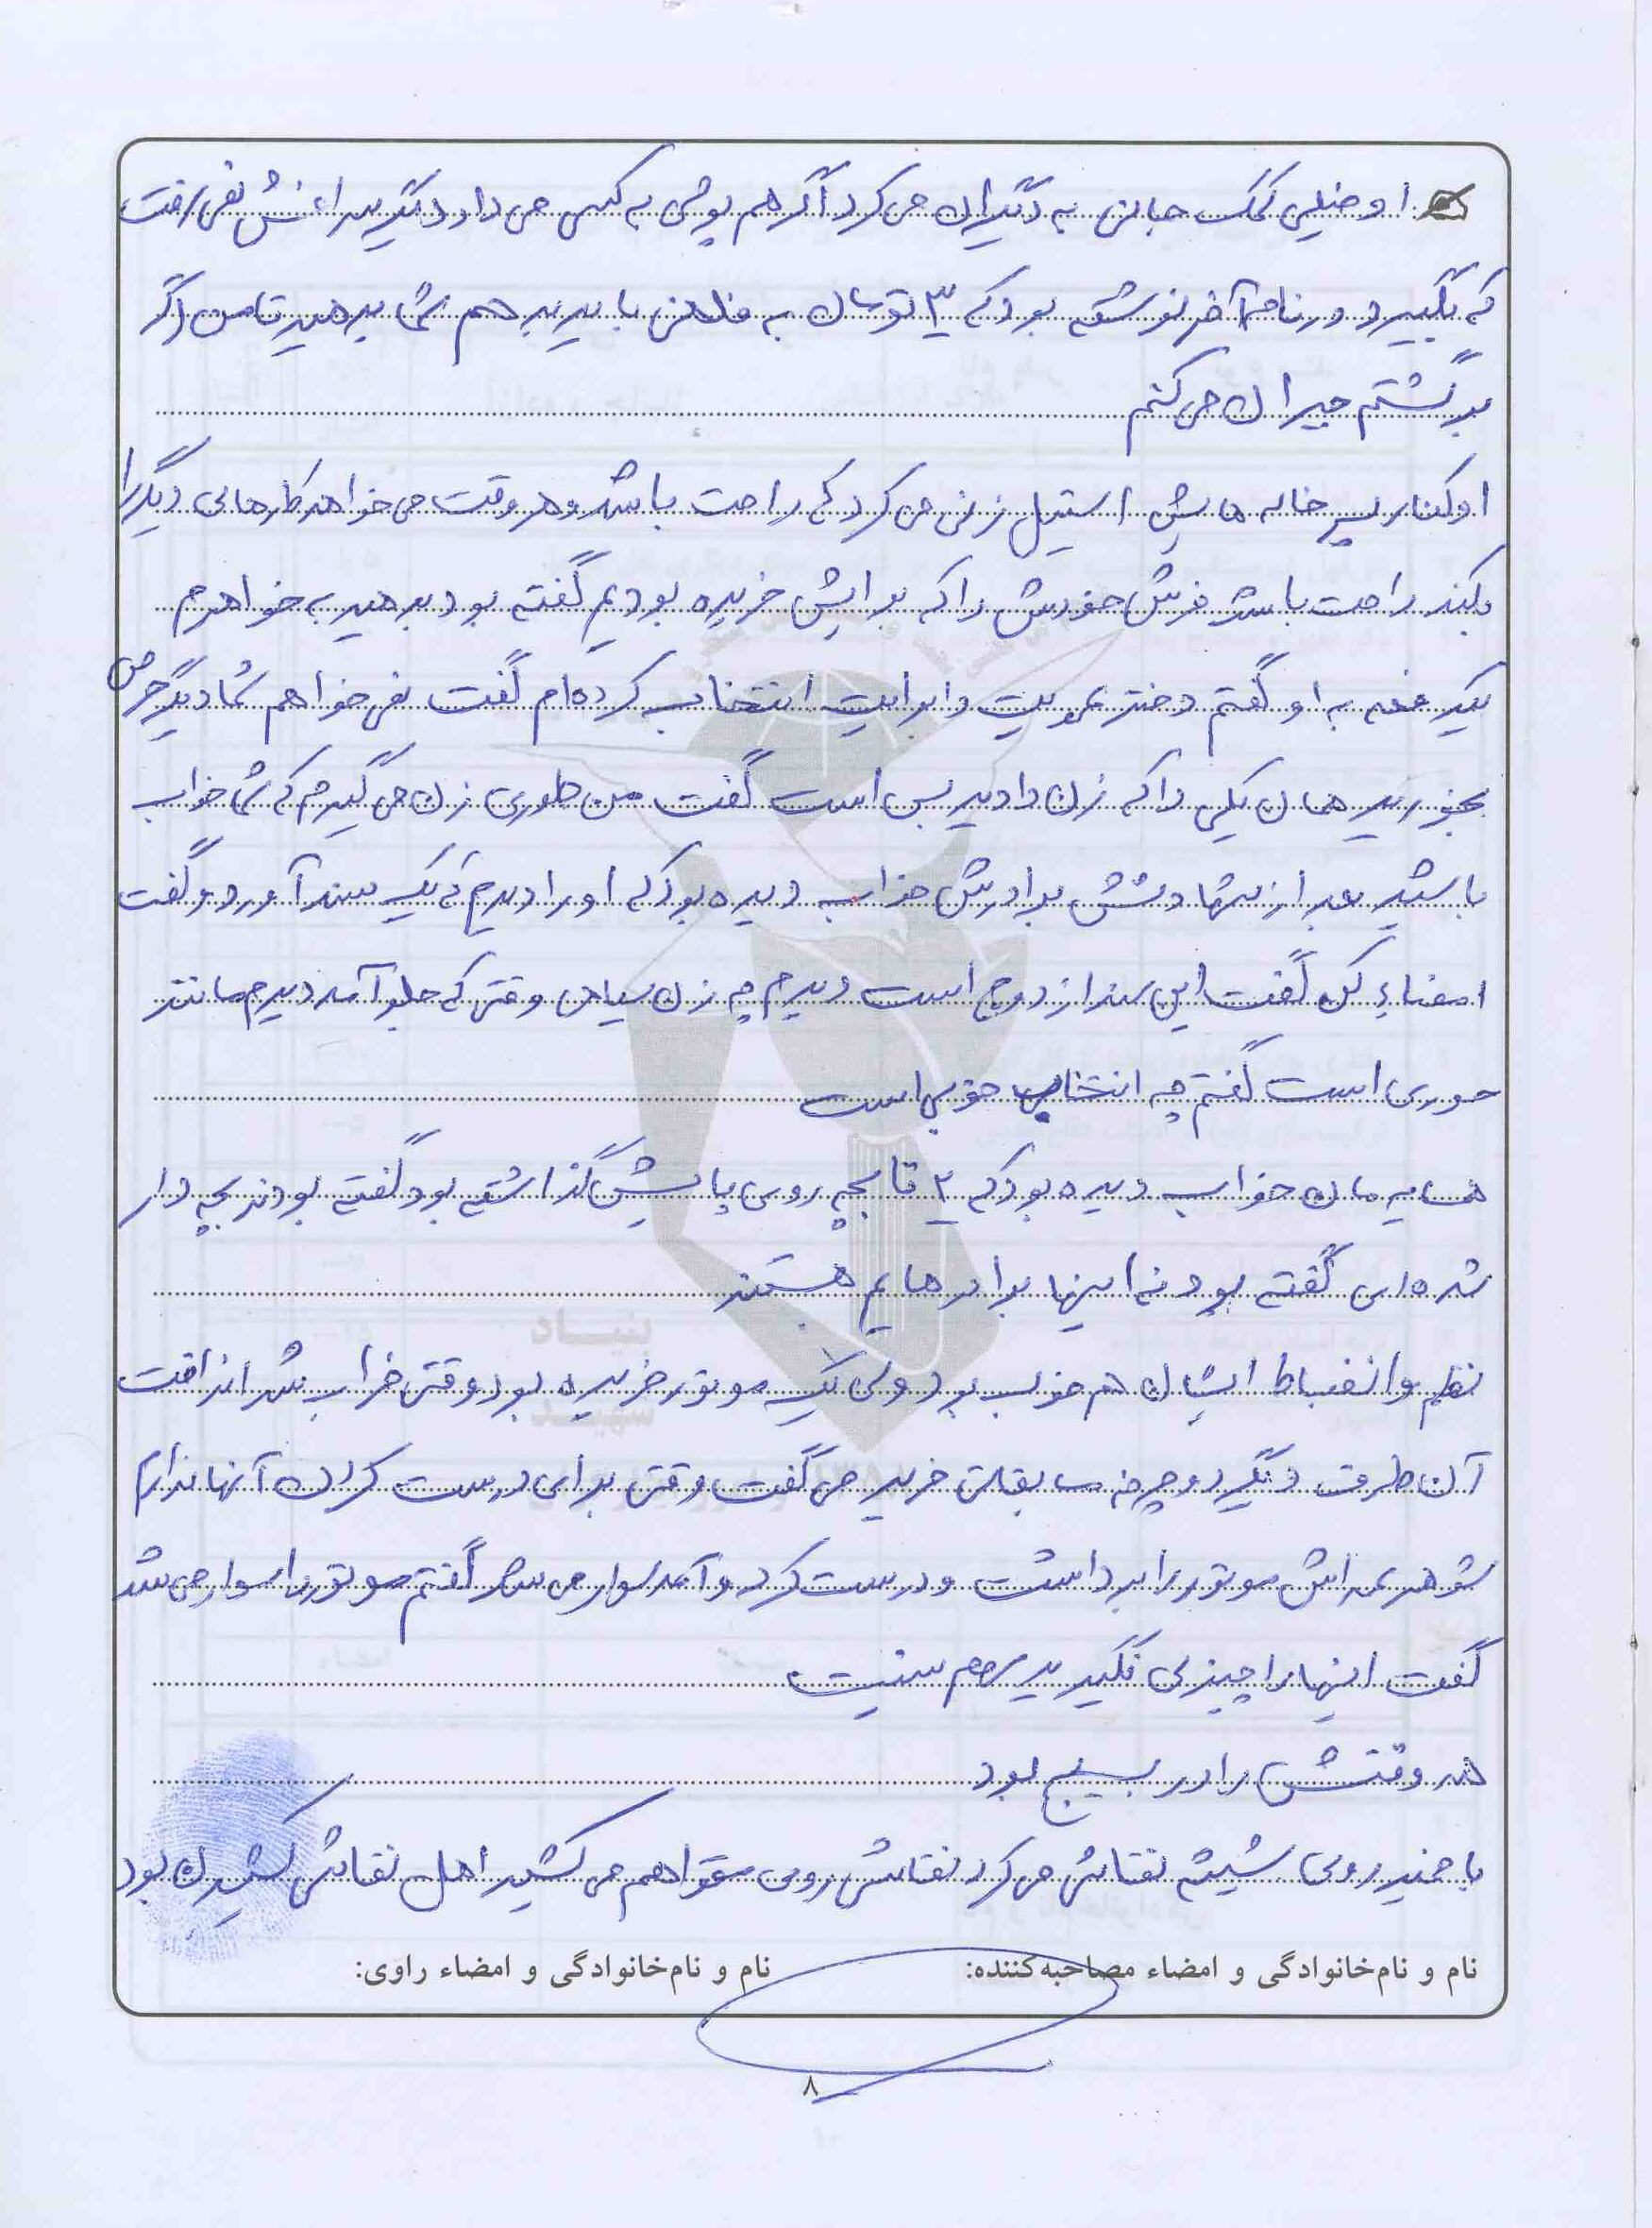 او خیلی کمک جانی به دیگران می کرد اگر هم پولی به کسی می داد دیگر سراغش نمی رفت
که بگیرد در نامه آخر نوشته بود که ۳ تومان به فلانی باید بدهم شما بدهید تا من اگر
برگشتم جبران می کنم
او کنار پسر خاله هایش استیل زنی می کرد که راحت باشد و هر وقت می خواهد کارهای دیگر را
بکند راحت باشد فرش خودش را که برایش خریده بودیم گفته بود بدهید به خواهرم
یکدفعه به او گفتم دختر عمویت را برایت انتخاب کرده ام گفت نمی خواهم شما دیگر حرص
بخورید همان یکی را که زن دادید بس است گفت من طوری زن می گیرم که شما خواب
باشید بعد از شهادتش برادرش خواب دیده بود که او را دیدم که یک سند آورد و گفت
امضاء کن گفت این سند ازدواج است دیدم چه زن سیاهی وقتی که جلو آمد دیدم مانند
حوری است گفتم چه انتخاب خوبی است
همسایه مان خواب دیده بود که ۲ تا بچه روی پایش گذاشته بود گفته بودند بچه دار
شده ای گفته بود نه اینها برادرهایم هستند
نظم و انضباط ایشان هم خوب بود ولی یک موتور خریده بود وقتی خراب شد انداخت
آن طرف دیگر دوچرخه سابقاتی خرید می گفت وقتی برای درست کردن آنها ندارم
شوهر عمه اش موتور را برداشت و درست کرد و آمد سوار می شد گفتم موتور را سوار می شد
گفت اینها را چیزی نگیرید مهم نیست
همه وقتش را در بسیج بود
با حمید روی شیشه نقاشی می کرد نقاشی روی مقوا هم می کشید اهل نقاشی کشیدن بود
نام و نام‌خانوادگی و امضاء مصاحبه‌کننده: نام و نام‌خانوادگی و امضاء راوی:
۸